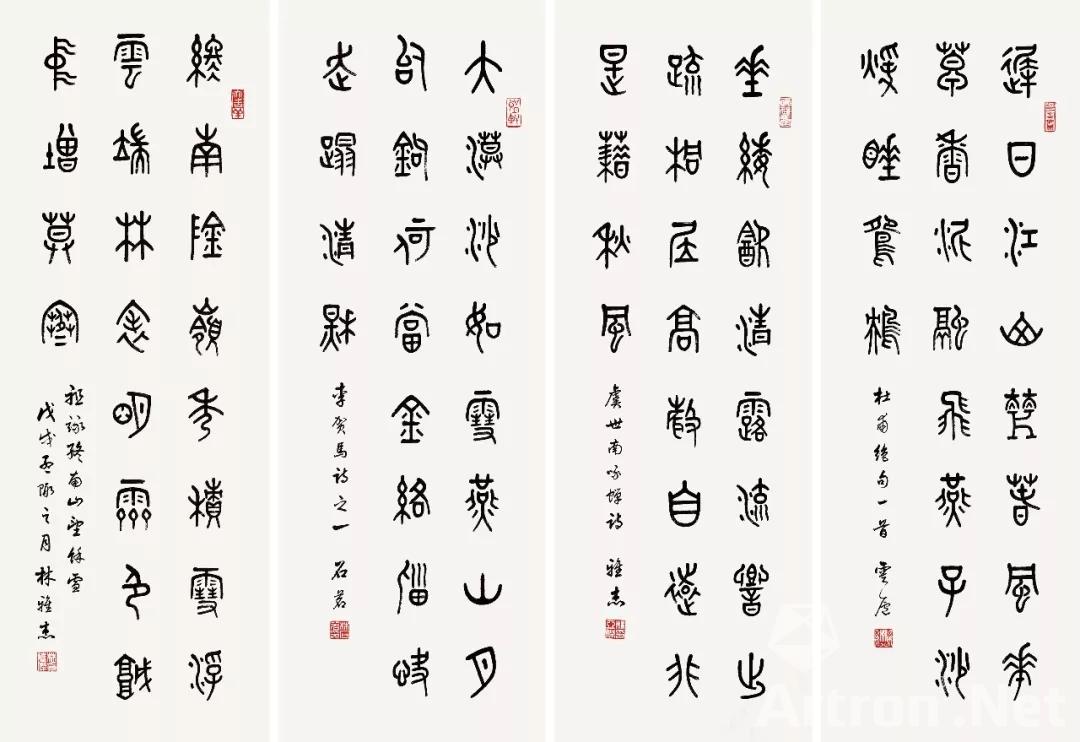 遲日江山麗春風華
草香泥融飛燕子沙
煖睡鴛鴦
杜甫絕句一首 雲廬
垂緌飲清露流響出
疏桐居高聲自遠非
是藉秋風
虞世南咏蟬詩 雅杰
大漠沙如雪燕山月
似鉤何當金絡腦快
走蹋清秋
李賀馬詩之一 石茗
終南陰嶺秀積雪浮
雲端林表明霽色城
中增莫寒
祖詠終南山望餘雪
戊戌孟陬之月 林雅杰
Artron.Net